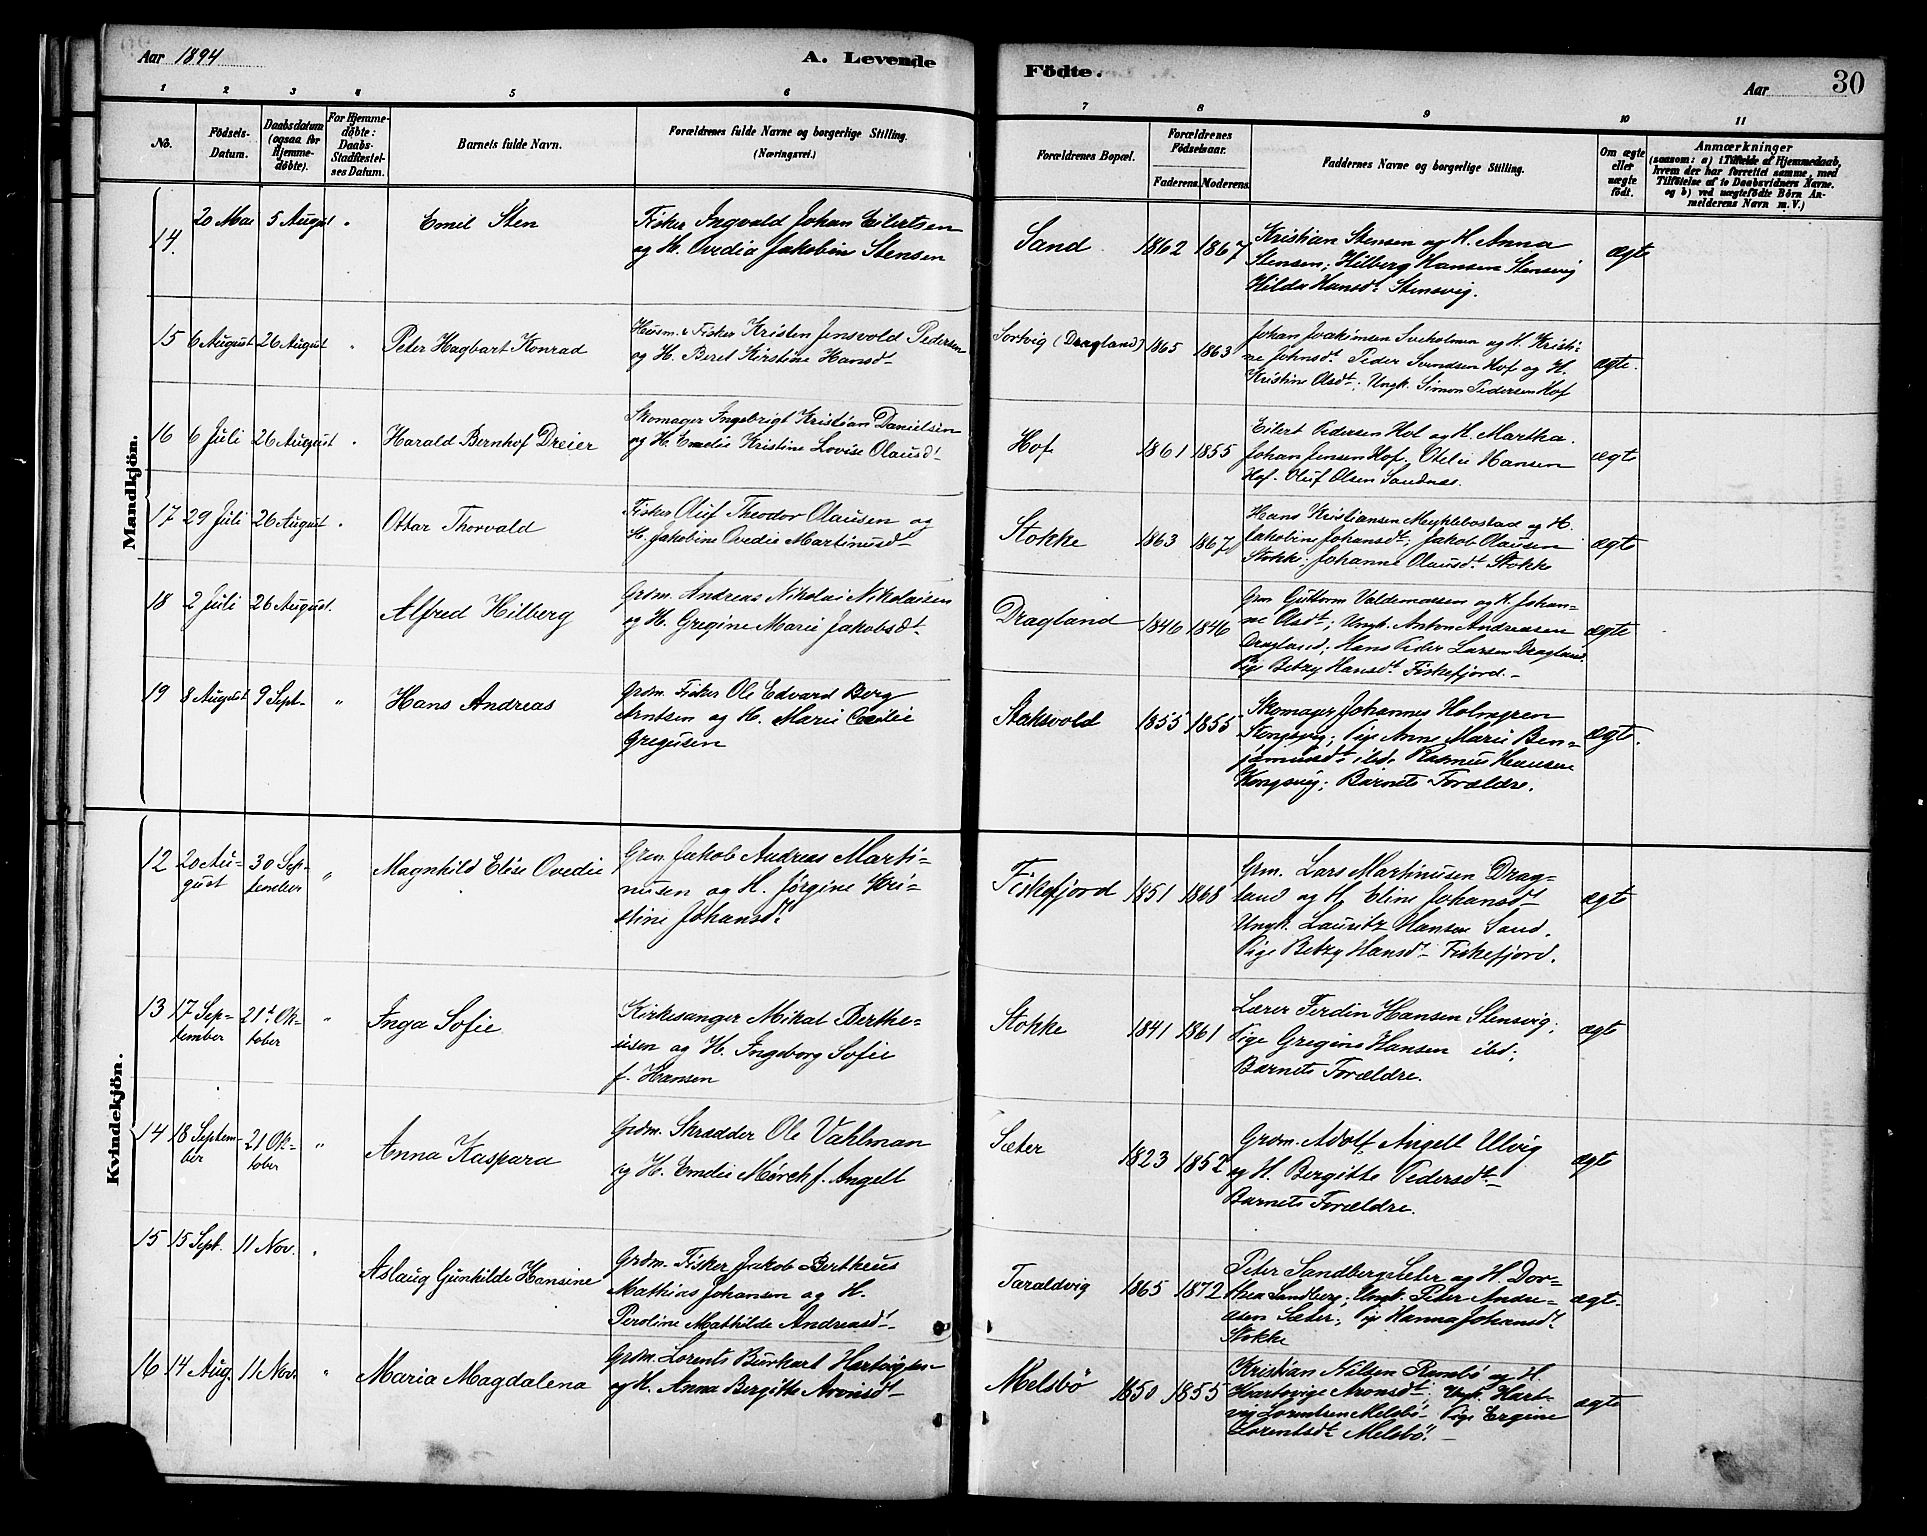 Aar 1894
A. Levende
Födte.
Aar
30
1 2 3 4 5 6 7 8 9 10 11
No.
Födsels-
Datum.
Daabsdatum
(ogsaa for
Hjemme-
døbte).
For Hjemme-
døbte:
Daabs-
Stadfæstel-
ses Datum.
Barnets fulde Navn.
Forældrenes fulde Navne og borgerlige Stilling.
(Næringsvei.)
Forældrenes Bopæl.
Forældrenes
Födselsaar.
Faderens. Moderens.
Faddernes Navne og borgerlige Stilling.
Om ægte
eller
uægte
födt.
Anmærkninger
(saasom: a) i Tilfælde af Hjemmedaab,
hvem der har forrettet samme, med
Tilföielse af to Daabsvidners Navne.
og b) ved uægtefödte Börn An-
melderens Navn m. V.)
Mandkjön.
14. 20 Mai 5 August " Emil Sten
Fisker Ingvald Johan Eilertsen
og H. Ovedia Jakobin Stensen
Sand 1862 1867
Kristian Stensen og H. Anna
Stensen; Hilberg Hansen Stensvig
Hilda Hansdt. Stensvig.
ægte
15 6 August 26 August " Peter Hagbart Konrad
Husm. & Fisker Kristen Jensvold Pedersen
og H. Beret Kirstine Hansdt
Sortvig (Dragland) 1865 1863
Johan Joakimsen Sveholmen og H. Kristi-
ne Johnsdt. Peder Svendsen Hof og H.
Kristine Olsdt; Ungk. Simon Pedersen Hof
ægte.
16 6 Juli 26 August " Harald Bernhof Dreier
Skomager Ingebrigt Kristian Danielsen
og H. Emelie Kristine Lovise Olausdt
Hof 1861 1855
Eilert Pedersen Hol og H. Martha.
Johan Jensen Hof. Otelie Hansen
Hof. Oluf Olsen Sandnæs.
ægte
17 29 Juli 26 August " Ottar Thorvald
Fisker Oluf Theodor Olausen og
H. Jakobine Ovedie Martinusdt
Stokke 1863 1867
Hans Kristiansen Myklebostad og H.
Jakobine Johansdt; Jakob Olausen
Stokke; Johanne Olausdt Stokke
ægte
18 2 Juli 26 August. Alfred Hilberg
Grdm. Andreas Nikolai Nikolaisen
og H. Gregine Marie Jakobsdt
Dragland 1846 1846
Grm Guttorm Valdemarsen og H. Johan-
ne Olsdt; Ungk. Anton Andreasen
Dragland; Hans Peder Larsen Dragland.
Pige Betzy Hansdt. Fiskefjord. -
ægte
19 8 August 9 Sept. " Hans Andreas
Grdm. Fisker Ole Edvard Berg
Arntsen og H. Marie Cecilie
Gregusen
Stakvold 1855 1855
Skomager Johannes Holmgren
Kongsvig; Pige Anne Marie Ben-
jaminsdt ibd. Rasmus Hansen
Kongsvig; Barnets Forældre.
ægte.
Kvindekjön.
12 20 Au-
gust 30 Sep-
tember " Magnhild Elise Ovedie
Grm. Jakob Andreas Marti-
nusen og H. Jørgine Kri-
stine Johansdt
Fiskefjord 1851 1868
Grm. Lars Martinusen Drag-
land og H. Eline Johansdt
Ungk. Lauritz Hansen Sand.
Pige Betzy Hansdt Fiskefjord.
ægte
13 17 Sep-
tember 21t Ok-
tober " Inga Sofie
Kirkesanger Mikal Berthe-
usen og H. Ingeborg Sofie
f. Hansen
Stokke 1841 1861
Lærer Ferdin Hansen Stensvig;
Pige Gregine Hansen ibd;
Barnets Forældre.
ægte
14 18 Septem-
ber 21 Ok-
tober " Anna Kaspara
Grdm. Skrædder Ole Vahlman
og H. Emelie Mørch f. Angell
Sæter 1823 1852
Grdm. Adolf Angell Ulvig
og H. Bergitte Pedersdt
Barnets Forældre.
ægte
15 15 Sept. 11 Nov. " Aslaug Gunhilde Hansine
Grdm. Fisker Jakob Bertheus
Mathias Johansen og H.
Peroline Mathilde Andreasdt
Taraldvig 1865 1872
Peter Sandberg Sæter og H. Dor-
thea Sandberg; Ungk. Peter Andre-
asen Sæter; Pige Hanna Johansdt
Stokke
ægte.
16 14 Aug. 11 Nov. " Maria Magdalena
Grdm. Lorents Burhart Hartvigsen
og H. Anna Bergitte Aronsdt
Melsbö 1850 1855
Kristian Nilsen Rambö og H.
Hartvige Aronsdt. Ungk. Hart-
vig Lorentsen Melsbö. Pige Ergine
Lorentsdt Melsbö.
ægte